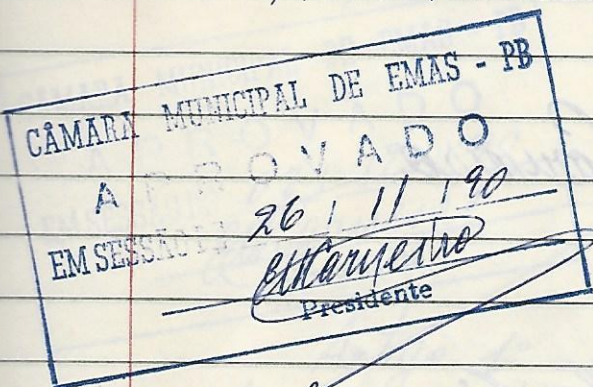 CÂMARA MUNICIPAL DE EMAS - PB
APROVADO
EM SESSÃO
26 / 11 / 90
Presidente